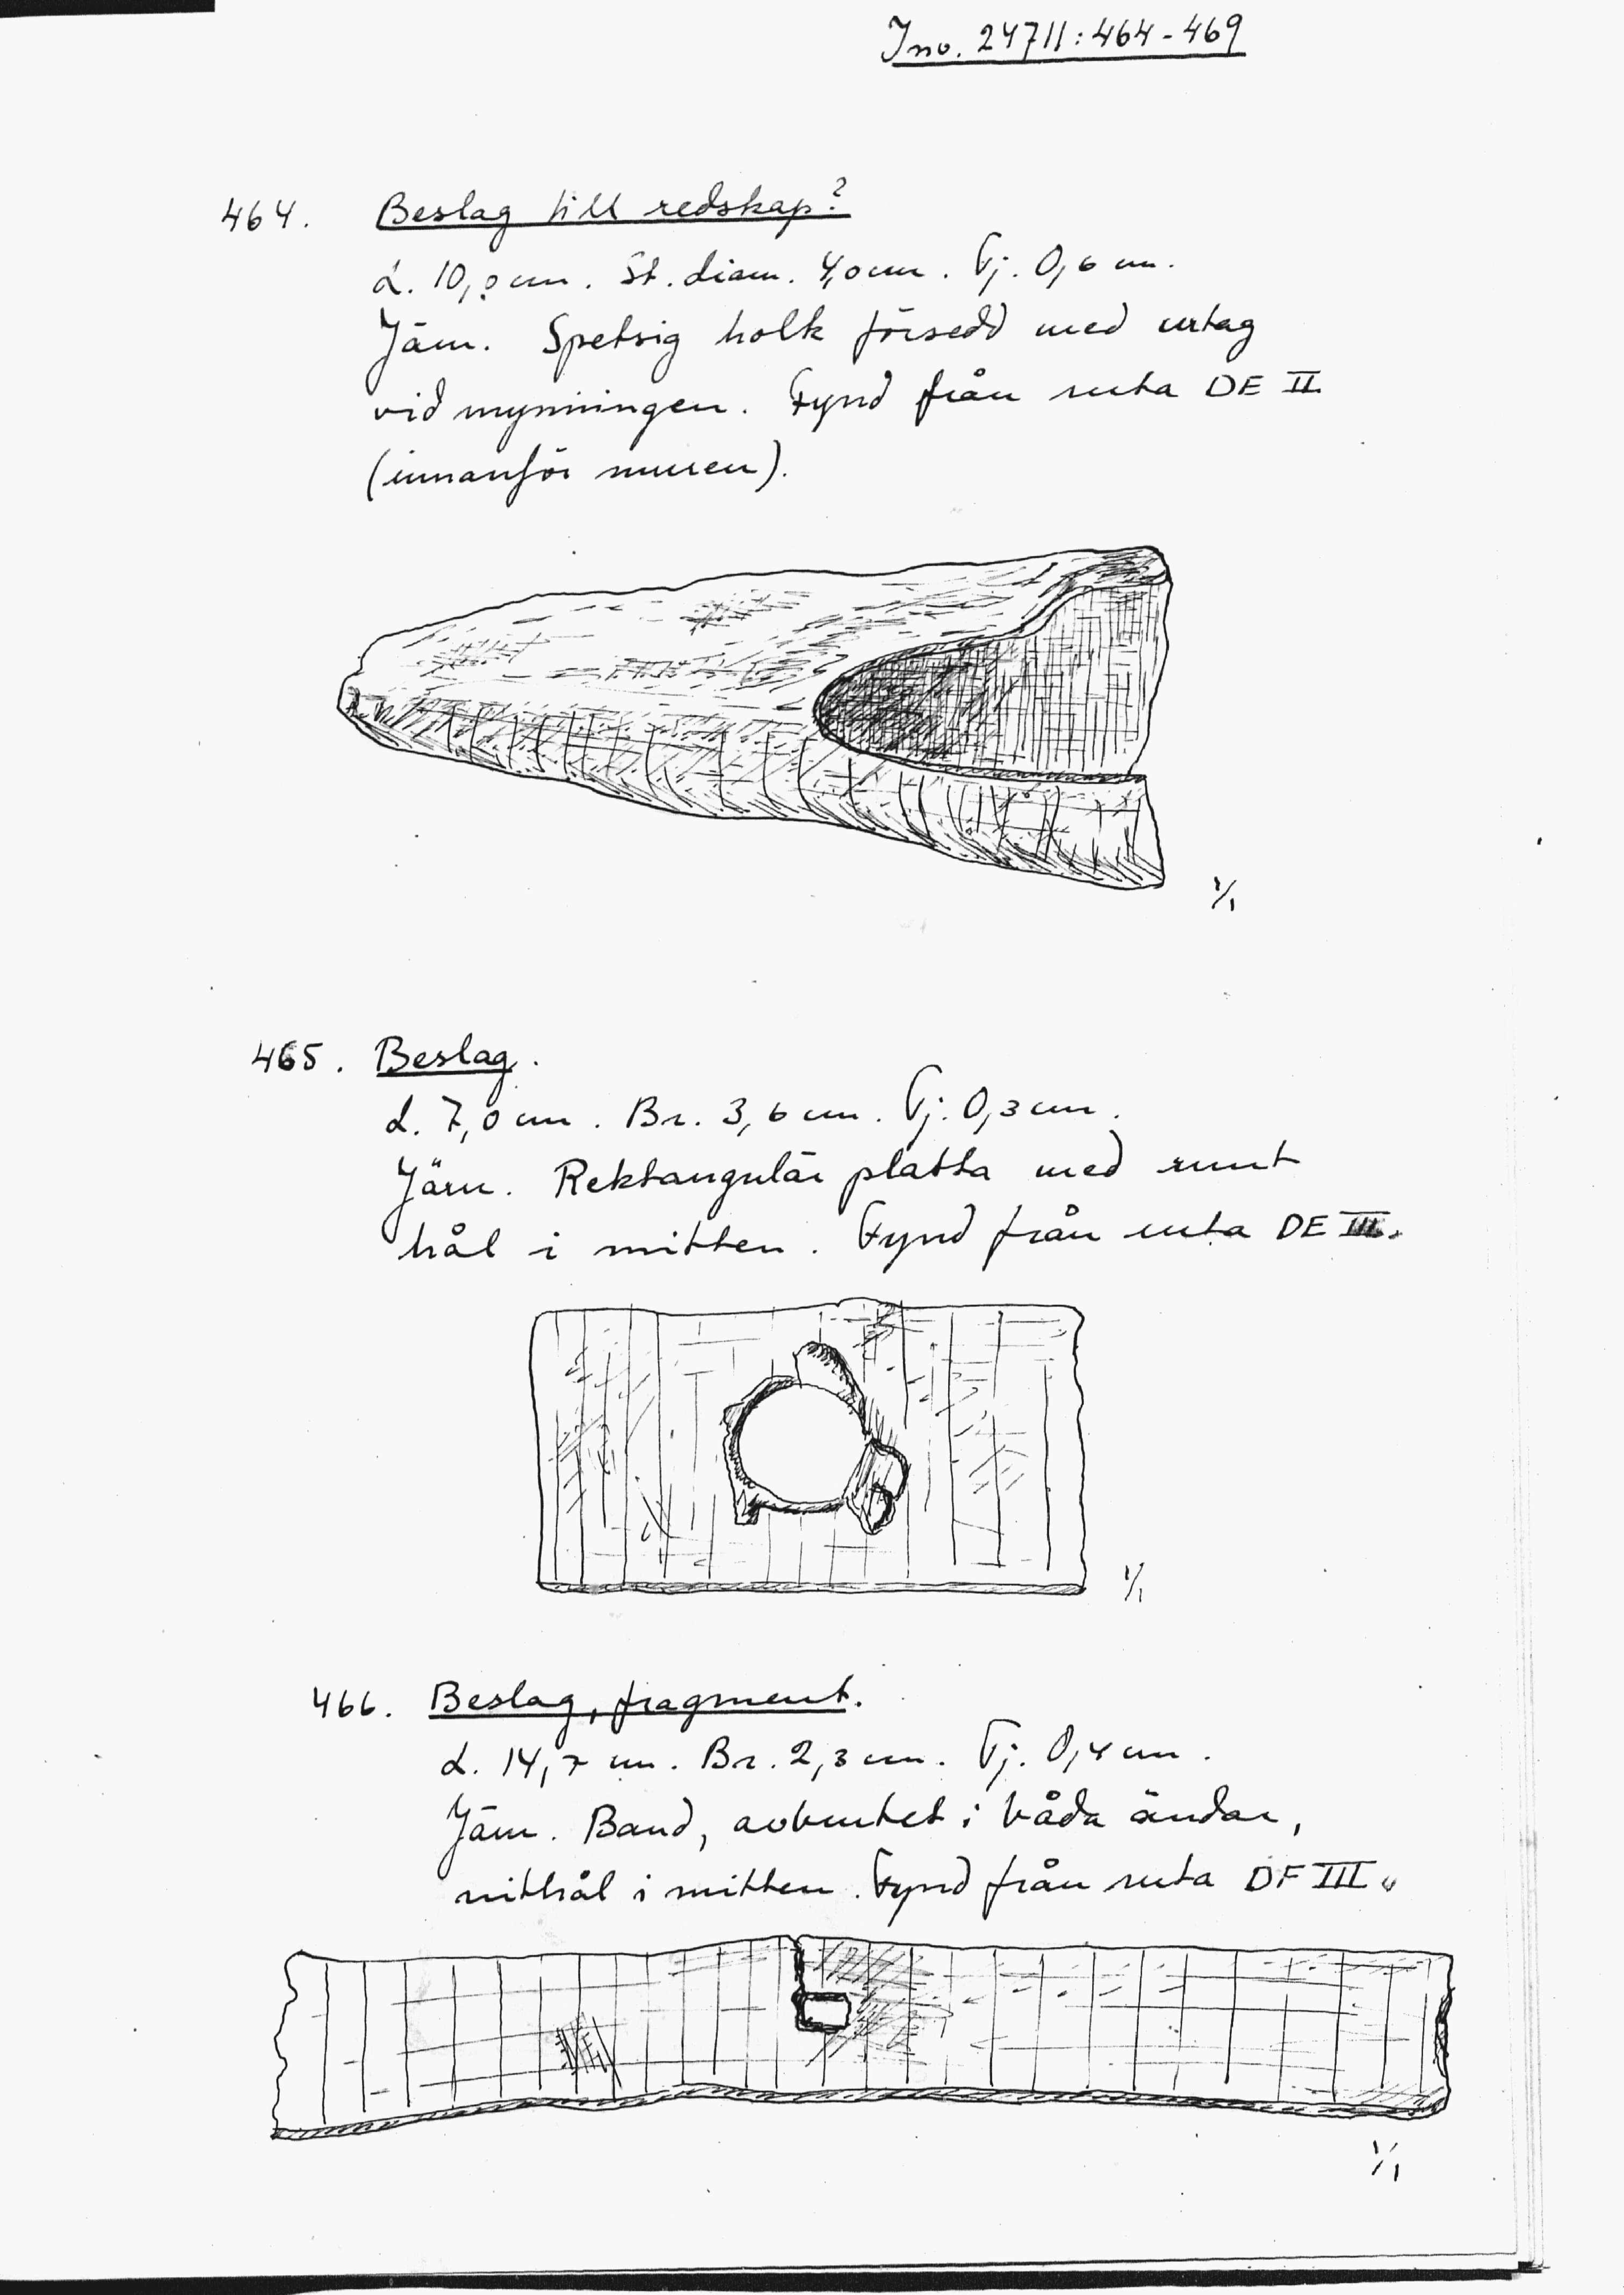 Inv. 24711:464-469
464. Beslag till redskap?
L. 10,0 cm. St. diam. 4,0 cm. Tj. 0,6 cm.
Järn. Spetsig holk försedd med urtag
vid mynningen. Fynd från ruta DE II.
(innanför muren).
1/1
465. Beslag.
L. 7,0 cm. Br. 3,6 cm. Tj. 0,3 cm.
Järn. Rektangulär platta med runt
hål i mitten. Fynd från ruta DE III.
1/1
466. Beslag, fragment.
L. 14,7 cm. Br. 2,3 cm. Tj. 0,4 cm.
Järn. Band, avbrutet i båda ändar,
nithål i mitten. Fynd från ruta DF III.
1/1